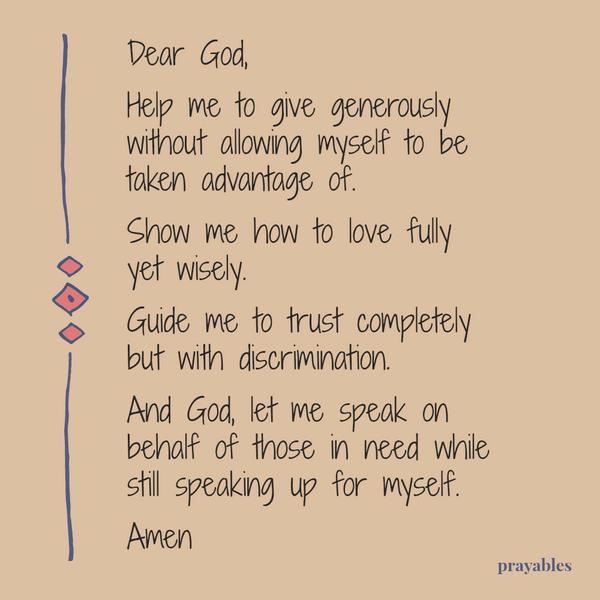 Dear God,
Help me to give generously
without allowing myself to be
taken advantage of.
Show me how to love fully
yet wisely.
Guide me to trust completely
but with discrimination.
And God, let me speak on
behalf of those in need while
still speaking up for myself.
Amen
prayables